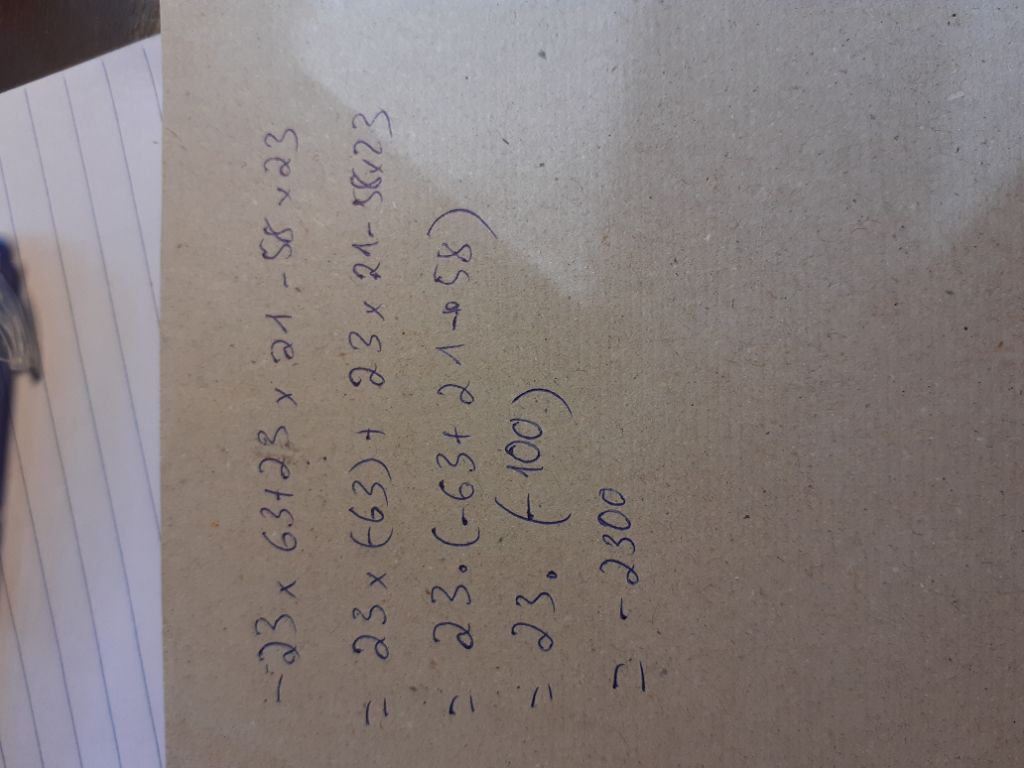 -23 x 63+23 x 21 - 58 x 23
= 23 x (-63) + 23 x 21 - 58x23
= 23.(-63 + 21 - 58)
= 23. (-100)
= -2300